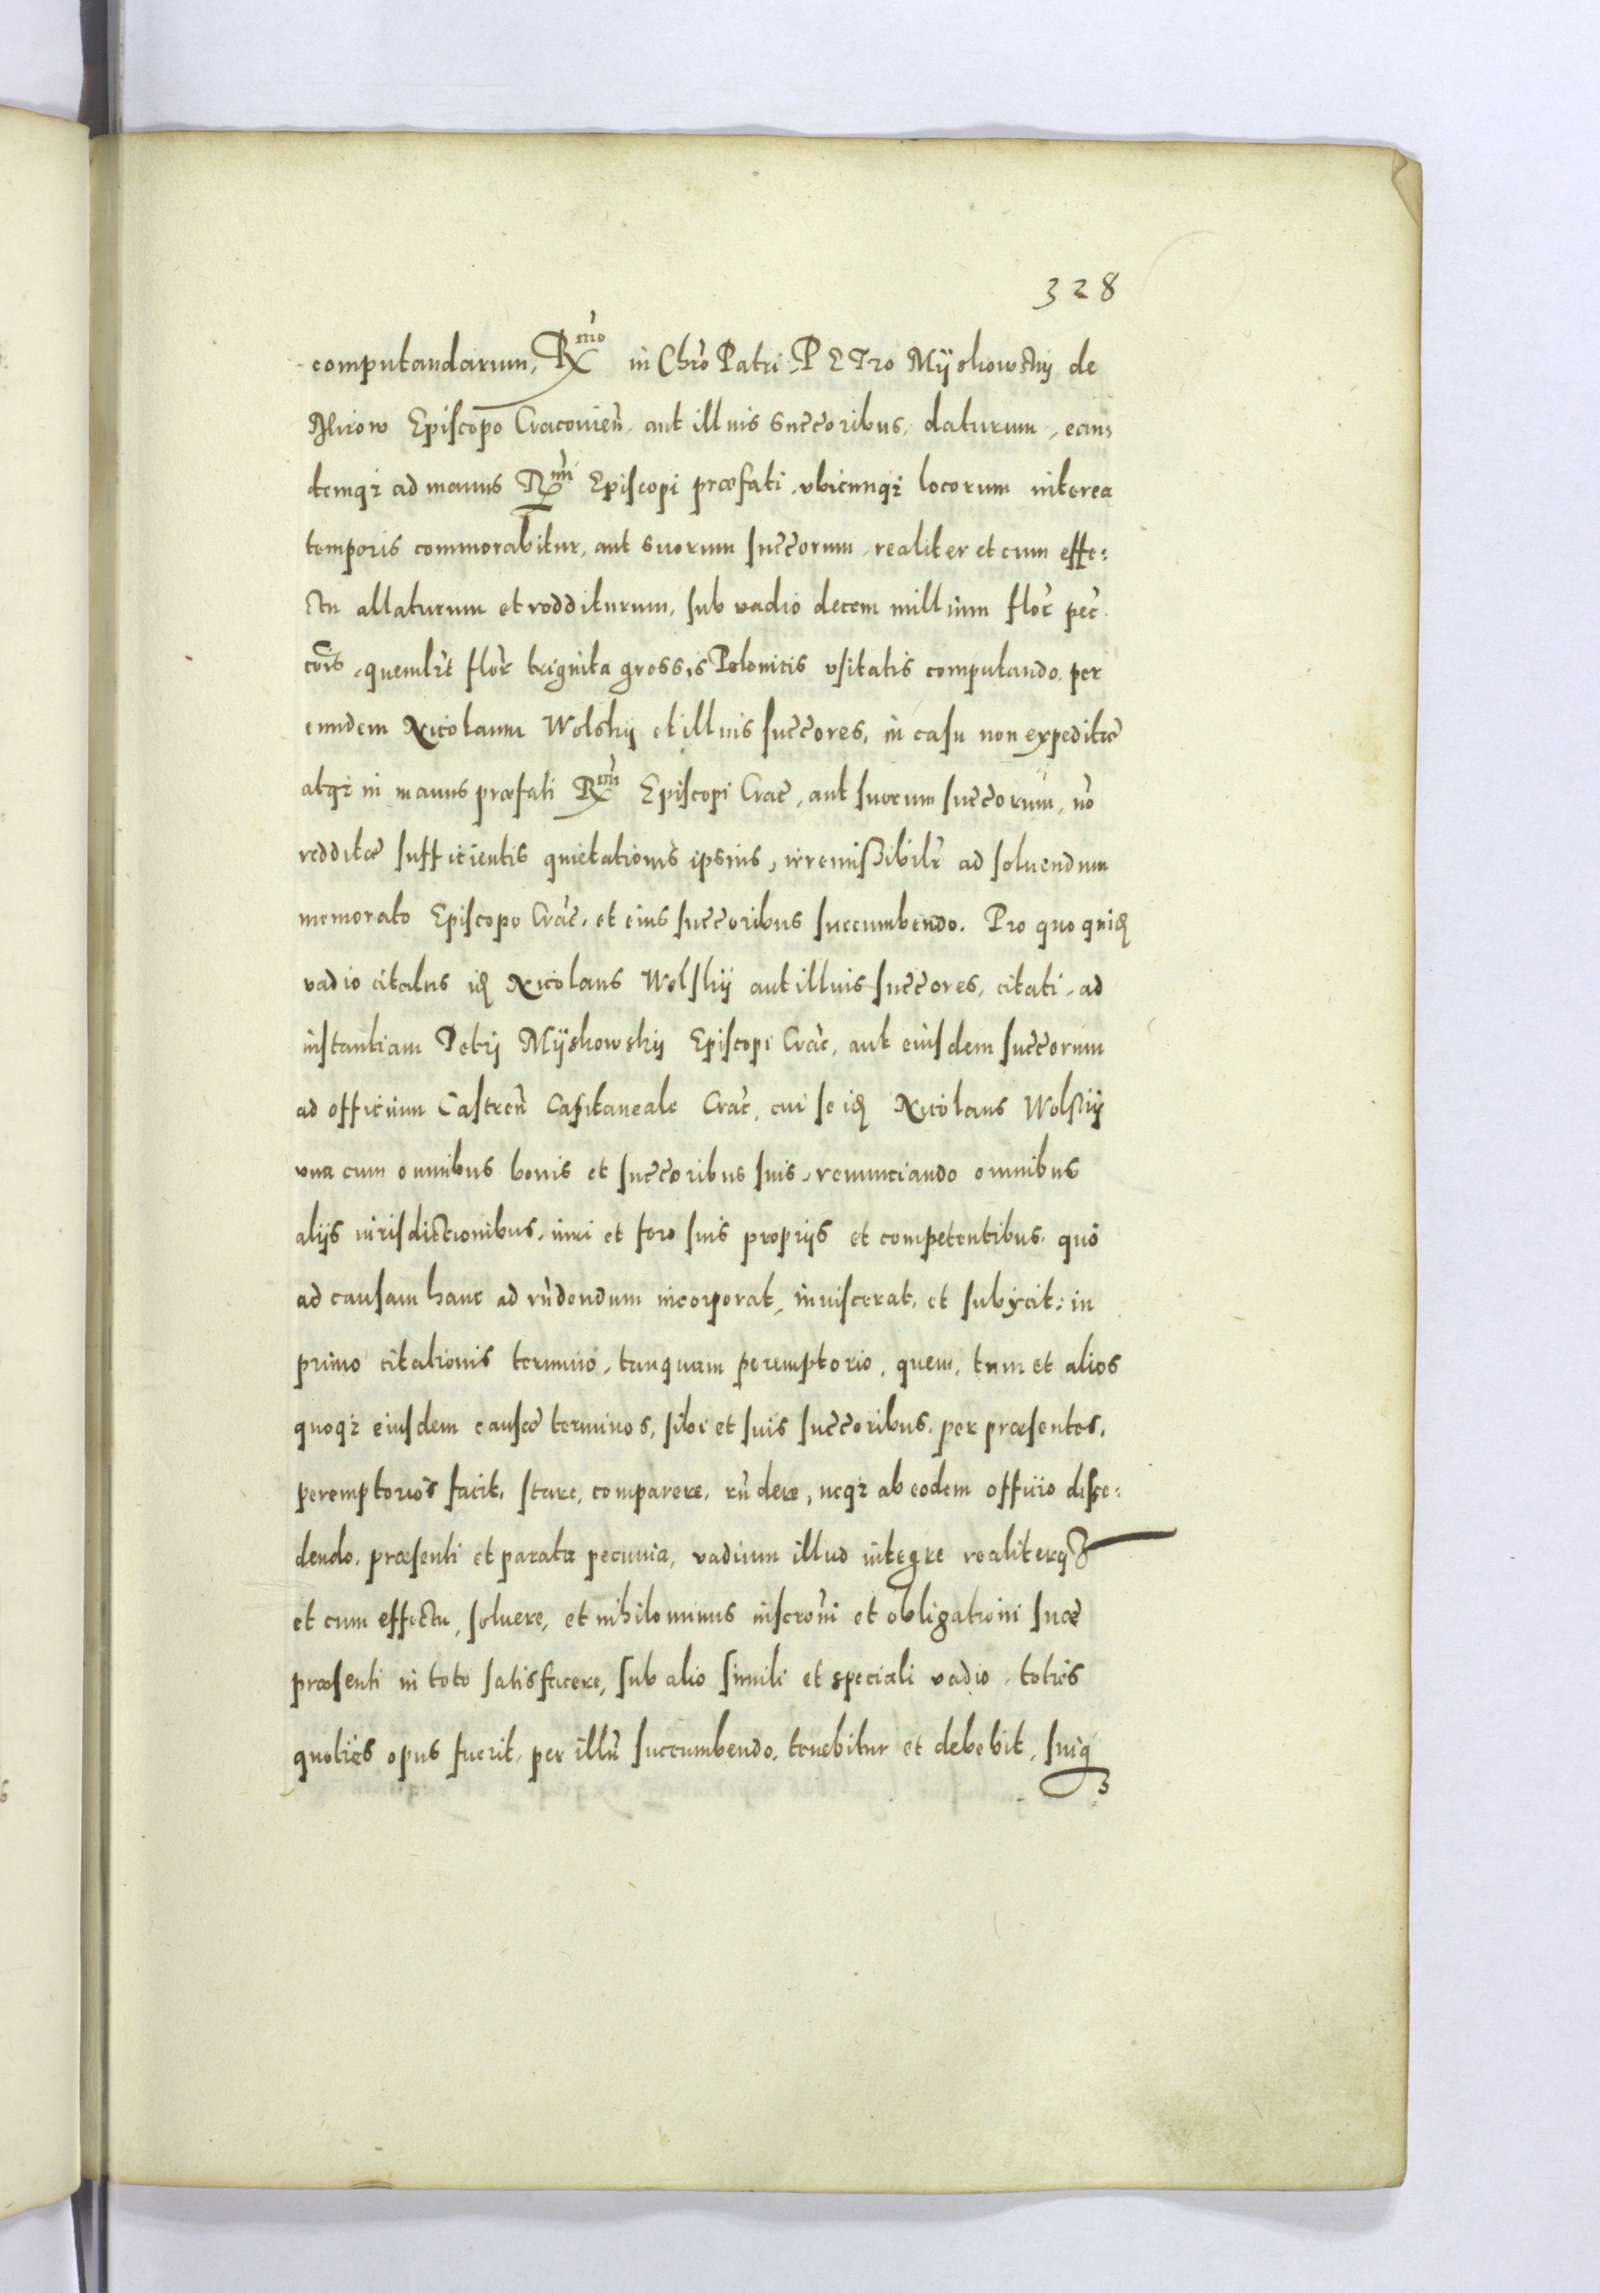 328
computandarum, Rx^mo in Chr̃o Patri PETro Myskowsky de
Mirow Episcopo Cracovien̄, aut illius succ̄oribus, daturum, ean-
demq3 ad manus Rx^mi Episcopi præfati, vbicunq3 locorum interea
temporis commorabitur, aut suorum succ̄orum, realiter et cum effe:
ctu allaturum et redditurum, sub vadio decem millium flor̄ pec̄
com̄s, quemlibt̄ flor̄ triginta grossis Polonicis vsitatis computando, per
eundem Nicolaum Wolsky et illius succ̄ores, in casu non expeditæ
atq3 in manus præfati Rx^mi Episcopi Crac̄, aut suorum succ̄orum, nō
redditæ sufficientis quietationis ipsius, irremissibilr̄ ad soluendum
memorato Episcopo Crac̄, et eius succ̄oribus succumbendo. Pro quo quid̄
vadio citatus id̄ Nicolaus Wolsky aut illius succ̄ores, citati, ad
instantiam Petri Myskowsky Episcopi Crac̄, aut eiusdem succ̄orum
ad officium Castren̄ Capitaneale Crac̄, cui se id̄ Nicolaus Wolsky
vna cum omnibus bonis et succ̄oribus suis, renunciando omnibus
alijs iurisdictionibus, iuri et foro suis proprijs et competentibus, quò
ad causam hanc ad rn̄dendum incorporat, inuiscerat, et subijcit: in
primo citationis termino, tanquam peremptorio, quem, tum et alios
quoq3 eiusdem causæ terminos, sibi et suis succ̄oribus, per præsentes,
peremptorios facit, stare, comparere, rn̄dere, neq3 ab eodem officio disce:
dendo, præsenti et parata pecunia, vadium illud integre realiterq3
et cum effectu, soluere, et nihilominus inscrōni et obligationi suæ
præsenti in toto satisfacere, sub alio simili et speciali vadio, toties
quoties opus fuerit, per illū succumbendo, tenebitur et debebit, suiq3